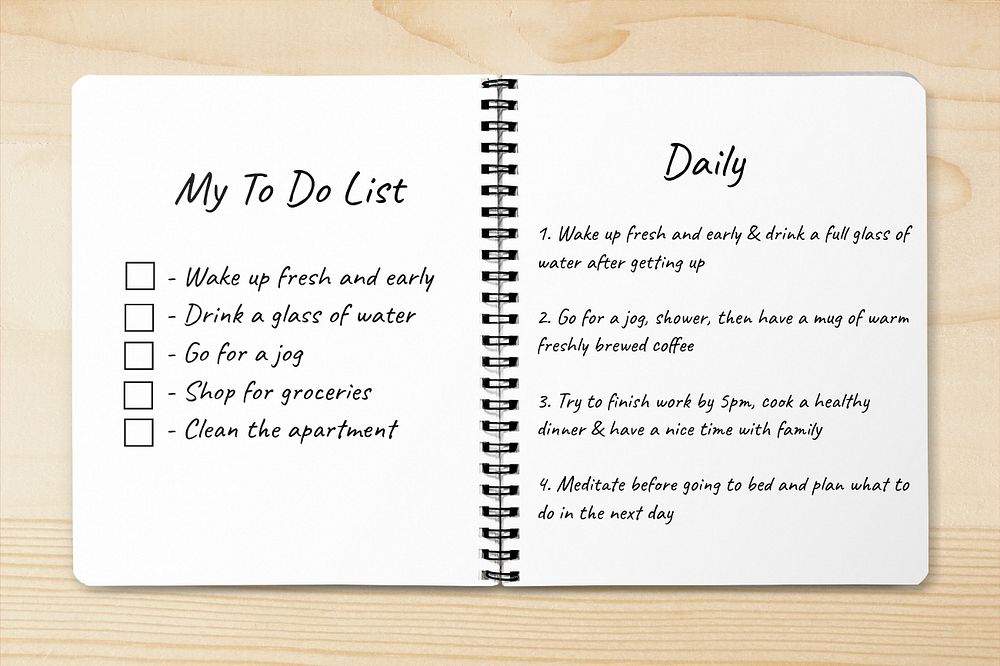 My To Do List
- Wake up fresh and early
- Drink a glass of water
- Go for a jog
- Shop for groceries
- Clean the apartment
Daily
1. Wake up fresh and early & drink a full glass of
water after getting up
2. Go for a jog, shower, then have a mug of warm
freshly brewed coffee
3. Try to finish work by 5pm, cook a healthy
dinner & have a nice time with family
4. Meditate before going to bed and plan what to
do in the next day